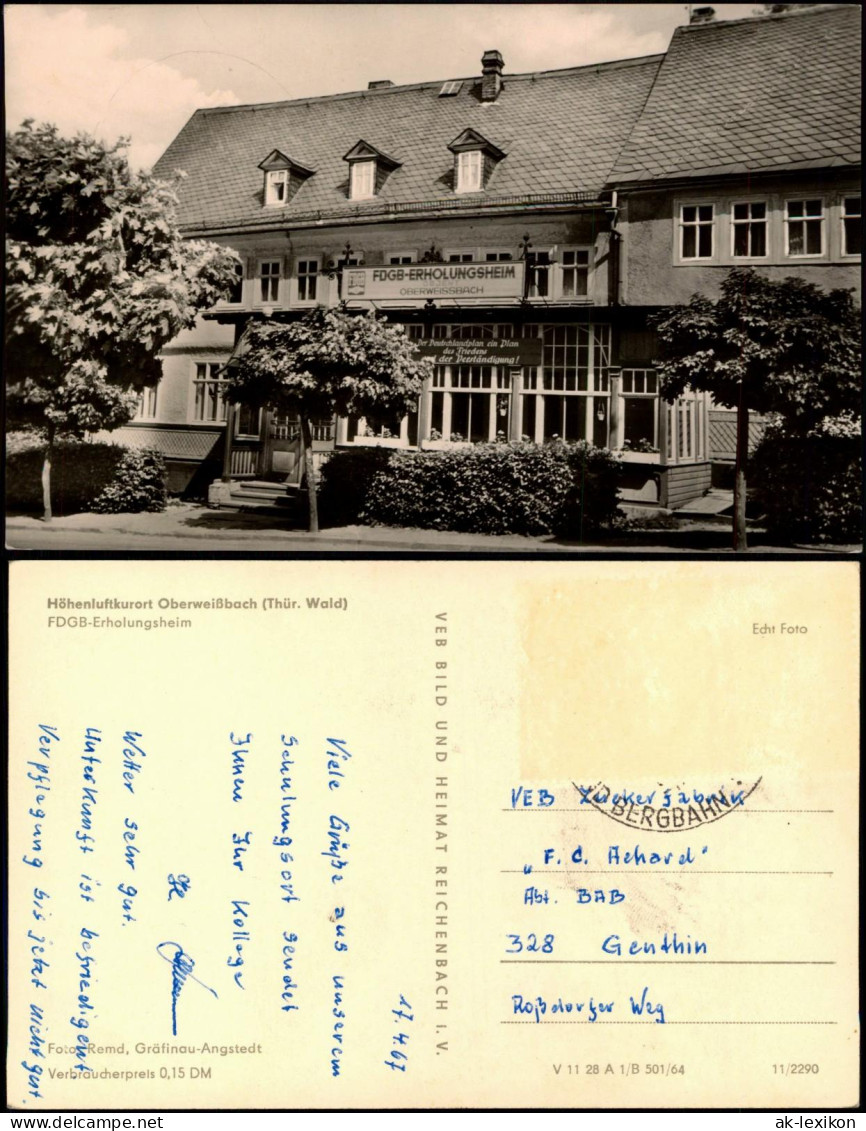 FDGB-ERHOLUNGSHEIM
OBERWEISSBACH
Der Deutschlandplan ein Plan
des Friedens
der Verständigung!
Höhenluftkurort Oberweißbach (Thür. Wald)
FDGB-Erholungsheim
Echt Foto
VEB BILD UND HEIMAT REICHENBACH I. V.
17.4.67
Viele Grüße aus unserem
Schulungsort sendet
Ihnen Ihr Kollege
Wetter sehr gut.
Unterkunft ist befriedigent
Verpflegung bis jetzt nicht gut.
BERGBAHN
VEB Zuckerfabrik
„F. C. Achard"
Abt. BAB
328 Genthin
Roßdorfer Weg
Foto: Remd, Gräfinau-Angstedt
Verbraucherpreis 0,15 DM
V 11 28 A 1/B 501/64
11/2290
ak-lexikon